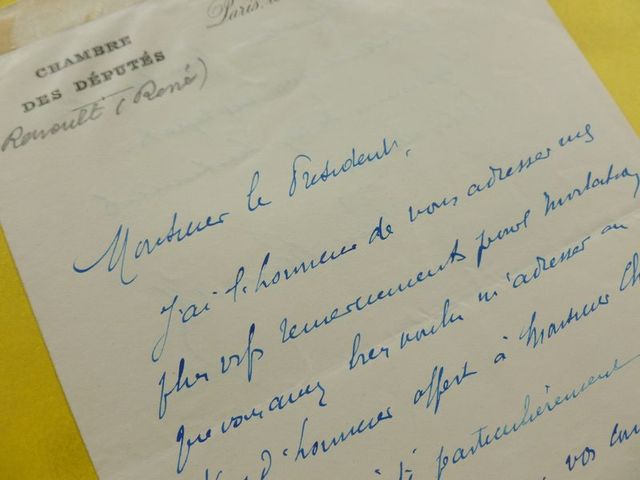 CHAMBRE
DES DÉPUTÉS
Renoult (René)
Paris, le
Monsieur le Président,
J'ai l'honneur de vous adresser mes
plus vifs remerciements pour l'invitation
que vous avez bien voulu m'adresser au
d'honneur offert à Monsieur Ch
particulièrement
vos